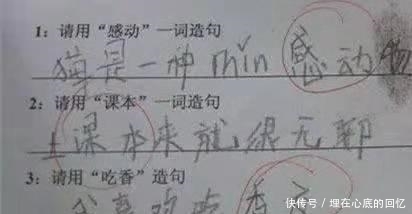 1：请用“感动”一词造句
猫是一种mǐn感动物
2：请用“课本”一词造句
上课本来就很无聊
3：请用“吃香”造句
我喜欢吃香
快传号/埋在心底的回忆